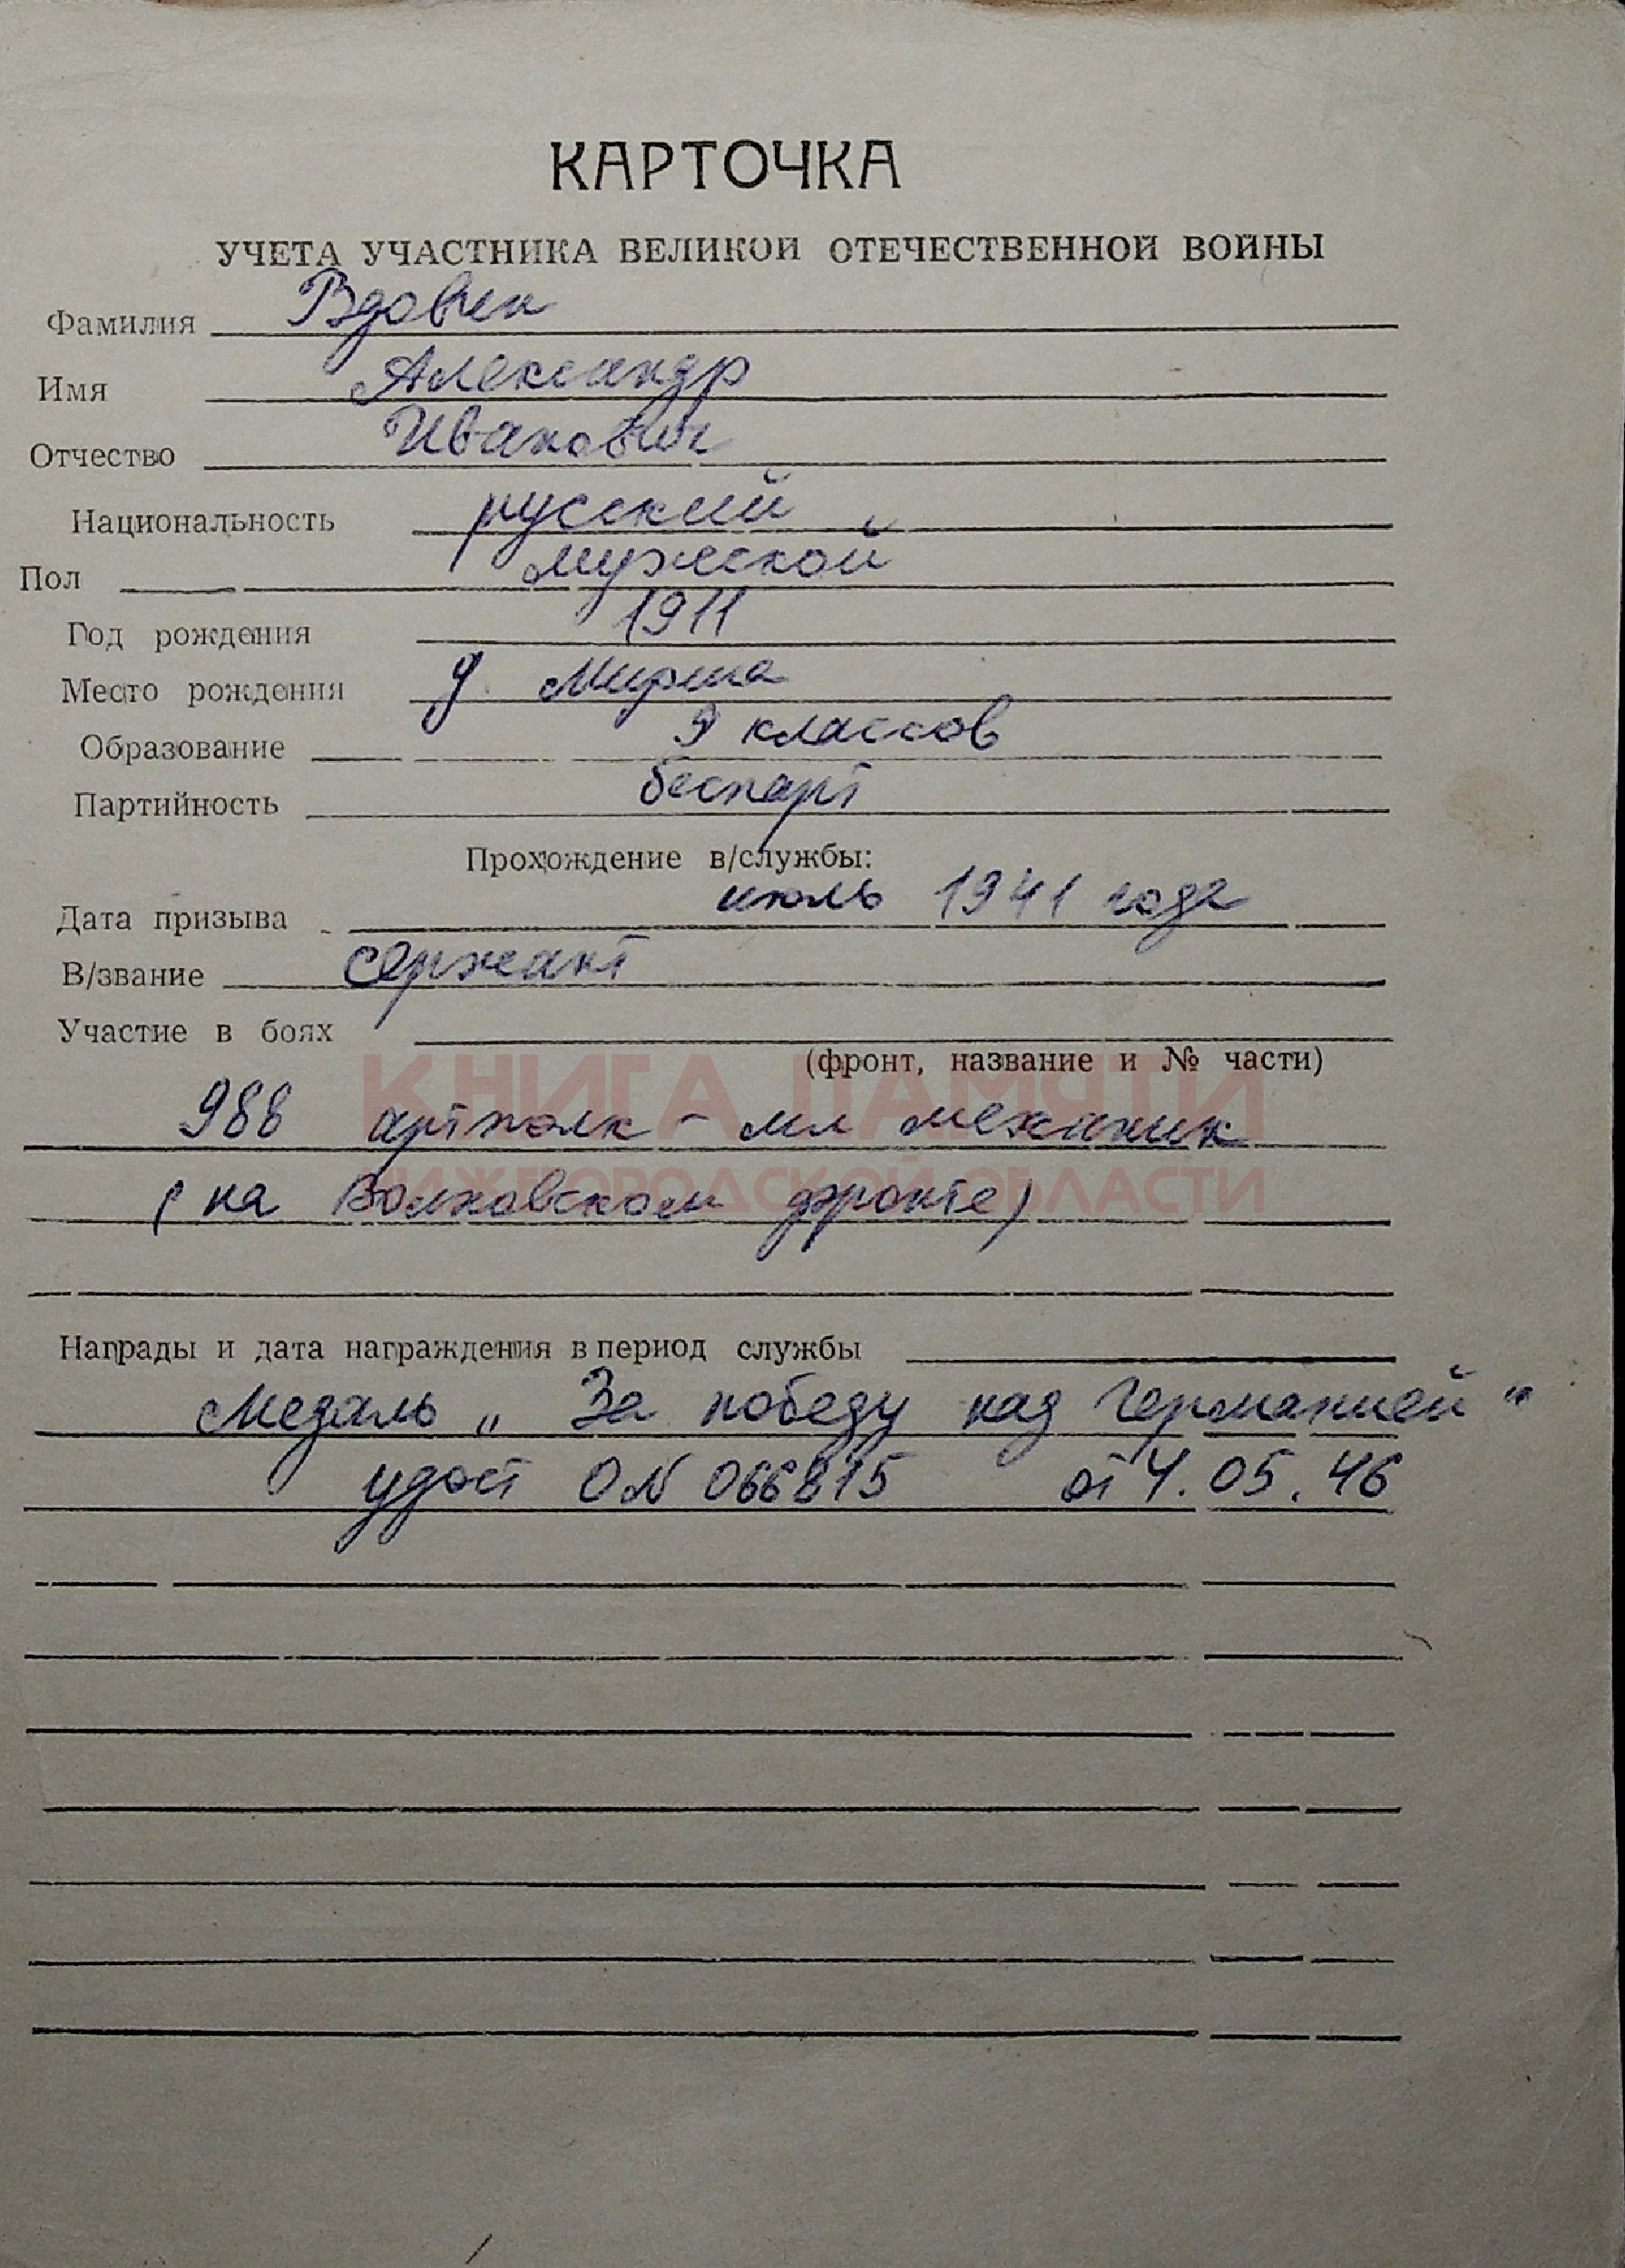 КАРТОЧКА
УЧЕТА УЧАСТНИКА ВЕЛИКОЙ ОТЕЧЕСТВЕННОЙ ВОЙНЫ
Фамилия Вдовин
Имя Александр
Отчество Иванович
Национальность русский
Пол мужской
Год рождения 1911
Место рождения д.
Образование 9 классов
Партийность беспарт
Прохождение в/службы:
Дата призыва июль 1941 года
В/звание сержант
Участие в боях
(фронт, название и № части)
КНИГА ПАМЯТИ
988 артполк - мл механик
НИЖЕГОРОДСКОЙ ОБЛАСТИ
(на Волховском фронте)
Награды и дата награждения в период службы
Медаль „За победу над Германией"
удост О№ 066815 от 4.05.46